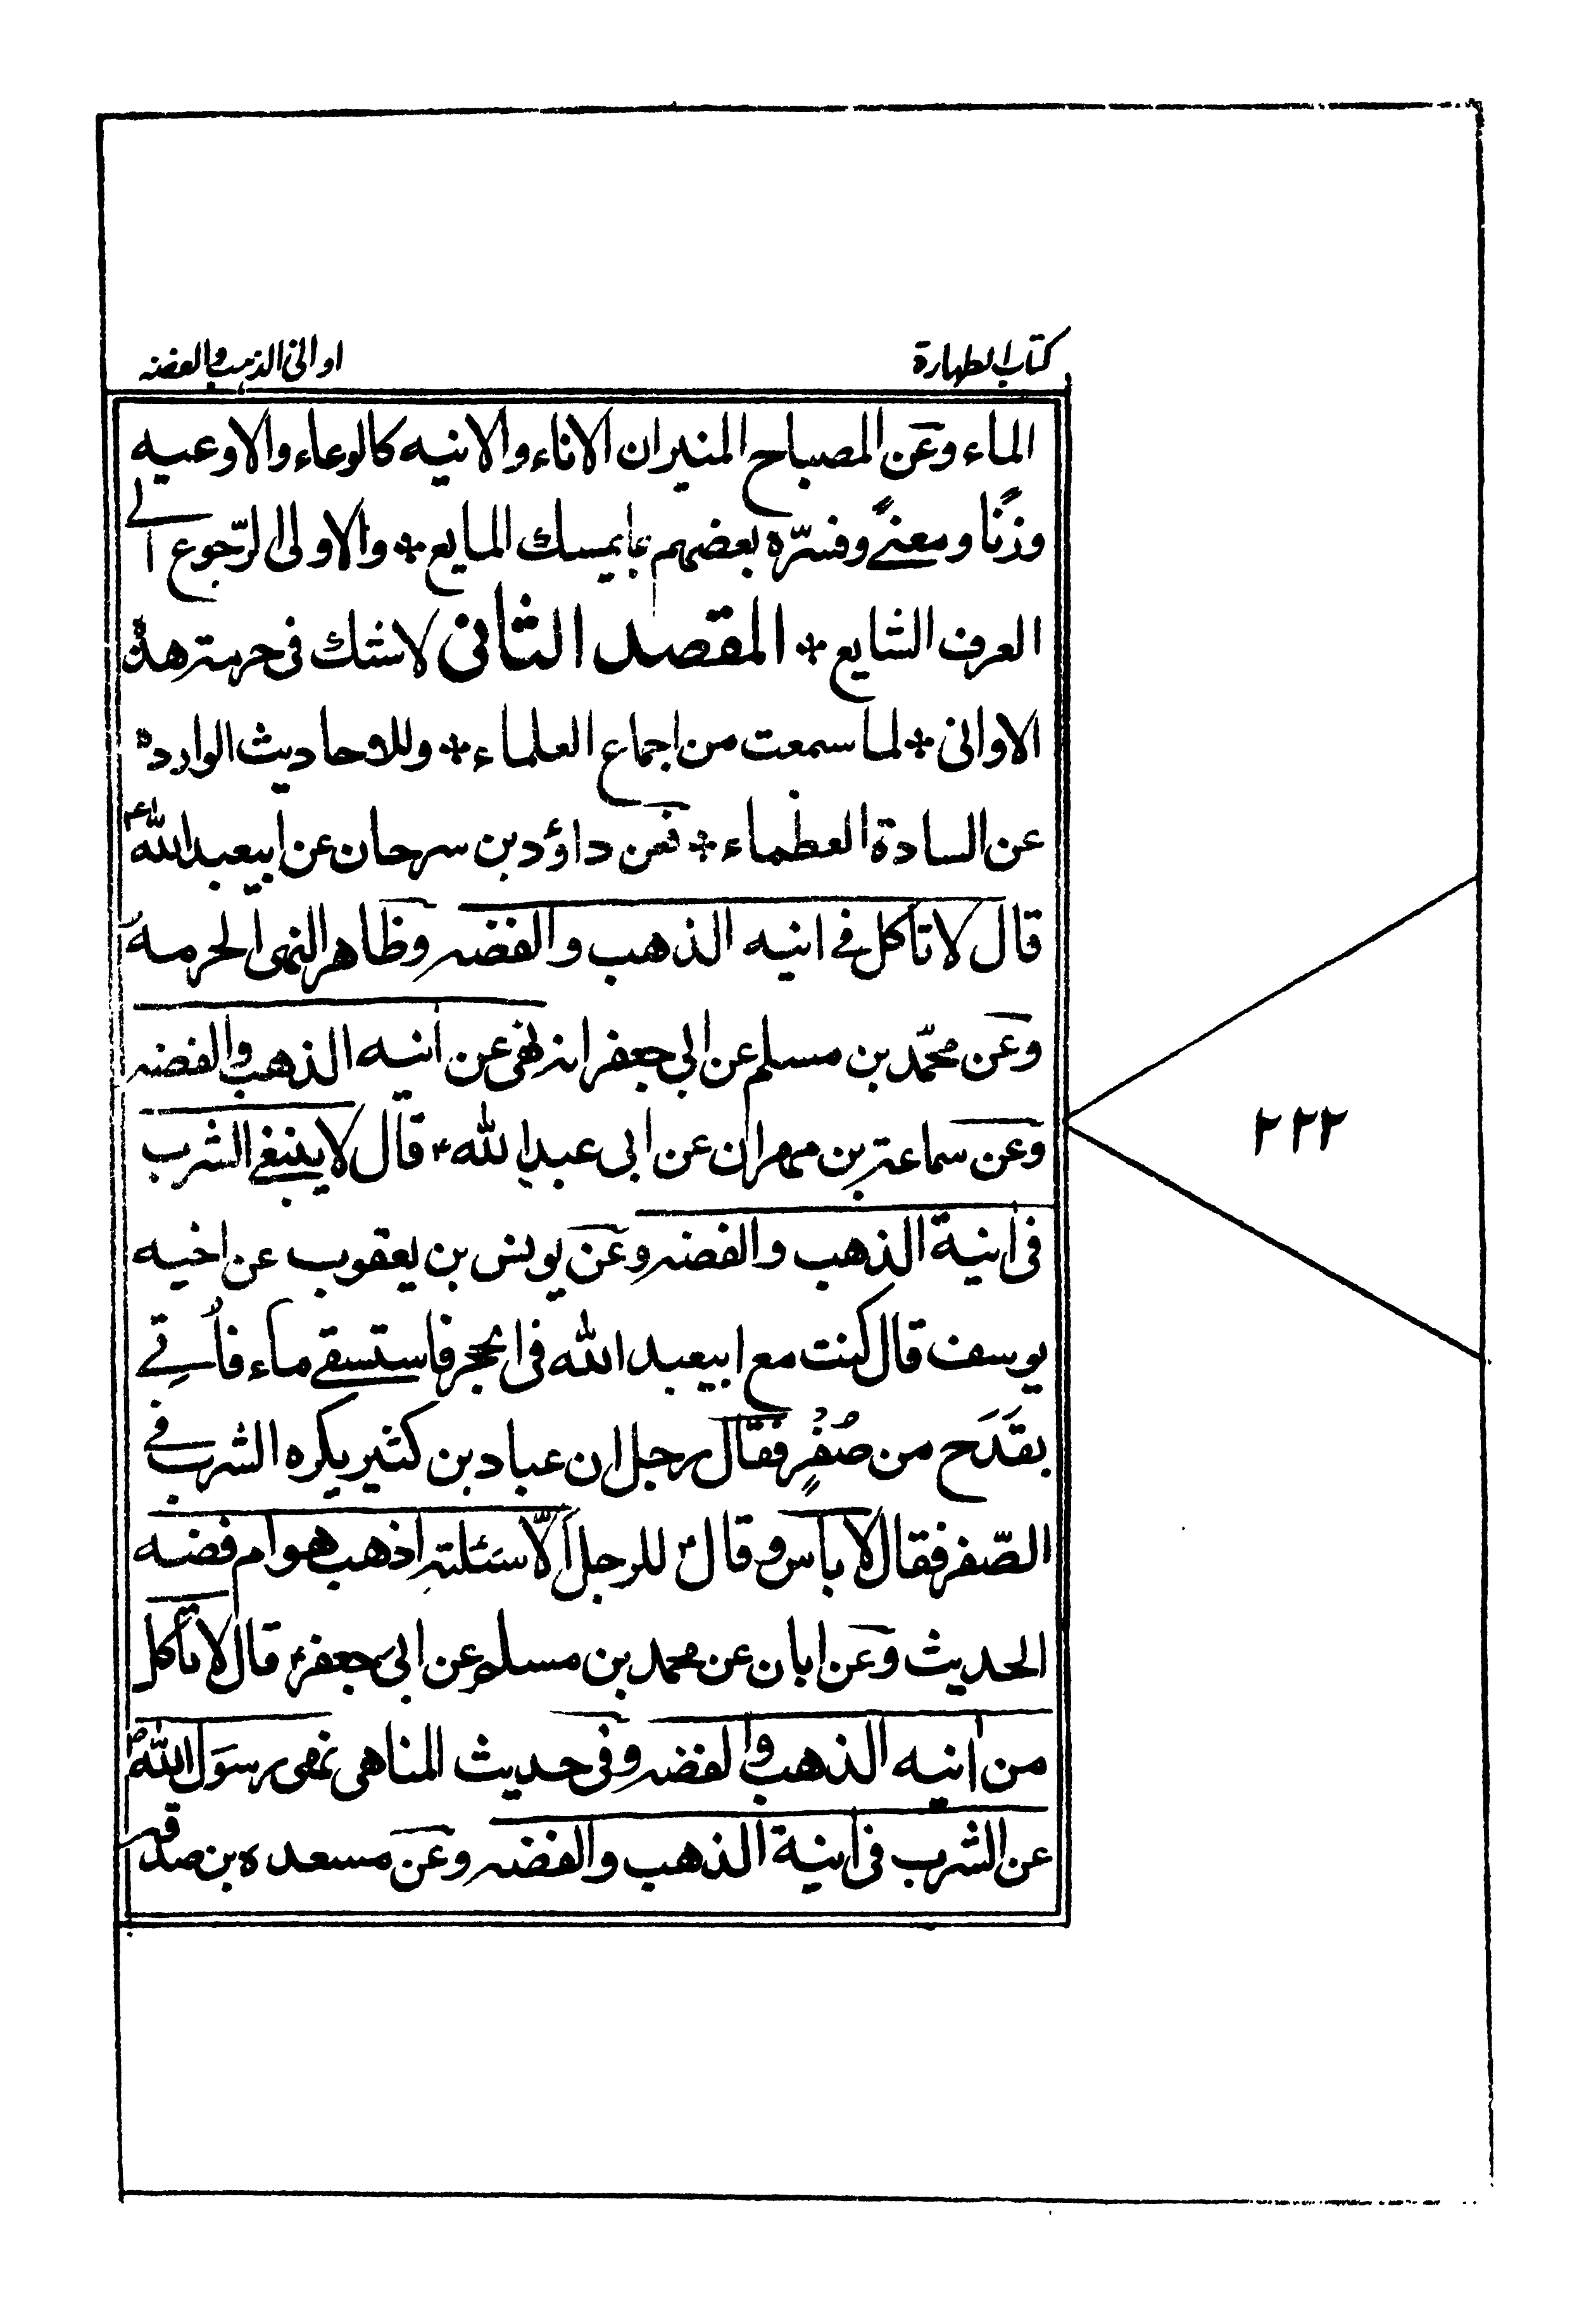 كتاب الطهارة
اوانى الذهب والفضه
الماء وعن المصباح المنير ان الاناء والانيه كالوعاء والاوعيه
وزنًا ومعنىً وفسّره بعضهم بمايمسك المايع * والاولى الرّجوع الى
العرف الشايع * المقصد الثانى لاشك فى حرمته هذه
الاوانى * لما سمعت من اجماع العلماء * وللاحاديث الوارده
عن السادة العظماء * فعن داؤد بن سرحان عن ابيعبدالله ع
قال لا تاكل فى انيه الذهب والفضه وظاهر النهى الحرمه
وعن محمّد بن مسلم عن ابى جعفر انه نهى عن انيه الذهب والفضه
وعن سماعته بن مهران عن ابى عبدالله ع قال لاينبغى الشرب
فى انية الذهب والفضه وعن يونس بن يعقوب عن اخيه
يوسف قال كنت مع ابيعبدالله فى الحجر فاستسقى ماء فاُتِى
بقَدَح من صُفُرٍ فقال رجل ان عباد بن كثير يكره الشرب فى
الصّفر فقال لاباس وقال ع للرجل اَلّا سئلته اذهب هو ام فضه
الحديث وعن ابان عن محمد بن مسلم عن ابى جعفر ع قال لا تأكل
من انيه الذهب والفضه وفى حديث المناهى نهى رسول الله ص
عن الشرب فى انية الذهب والفضه وعن مسعده بن صدقه
٢٢٢